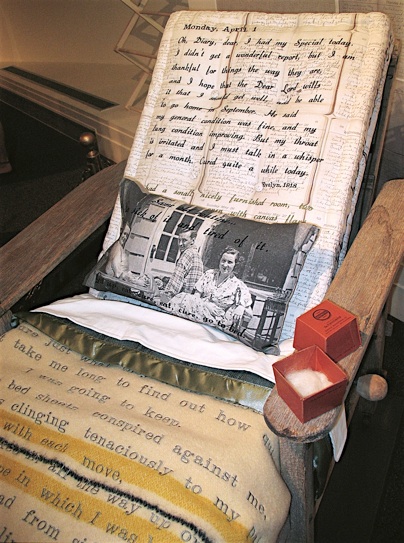 Monday, April 1
Oh, Diary, dear, I had my Special today.
I didn't get a wonderful report, but I am
thankful for things the way they are,
and I hope that the Dear Lord wills
it that I get well, and be able
to go home in September. He said
my general condition was fine, and my
lung condition improving. But my throat
is irritated and I must talk in a whisper
for a month. Cured quite a while today.
Evelyn, 1918
had a small, nicely furnished room,
with canvas
tired of it.
eat, cure, go to bed
take me long to find out how
I was going to keep.
bed sheets conspired against me,
clinging tenaciously to my
with each move,
all the way up
in which I was